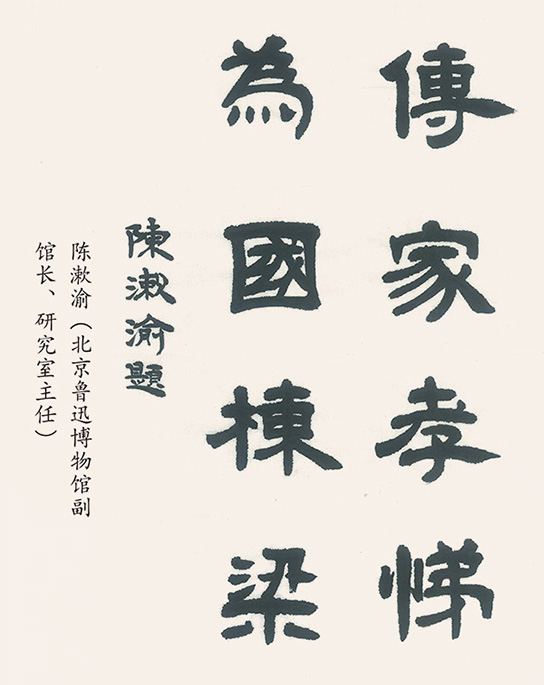 傳家孝悌
為國棟梁
陳漱渝題
陈漱渝（北京鲁迅博物馆副
馆长、研究室主任）